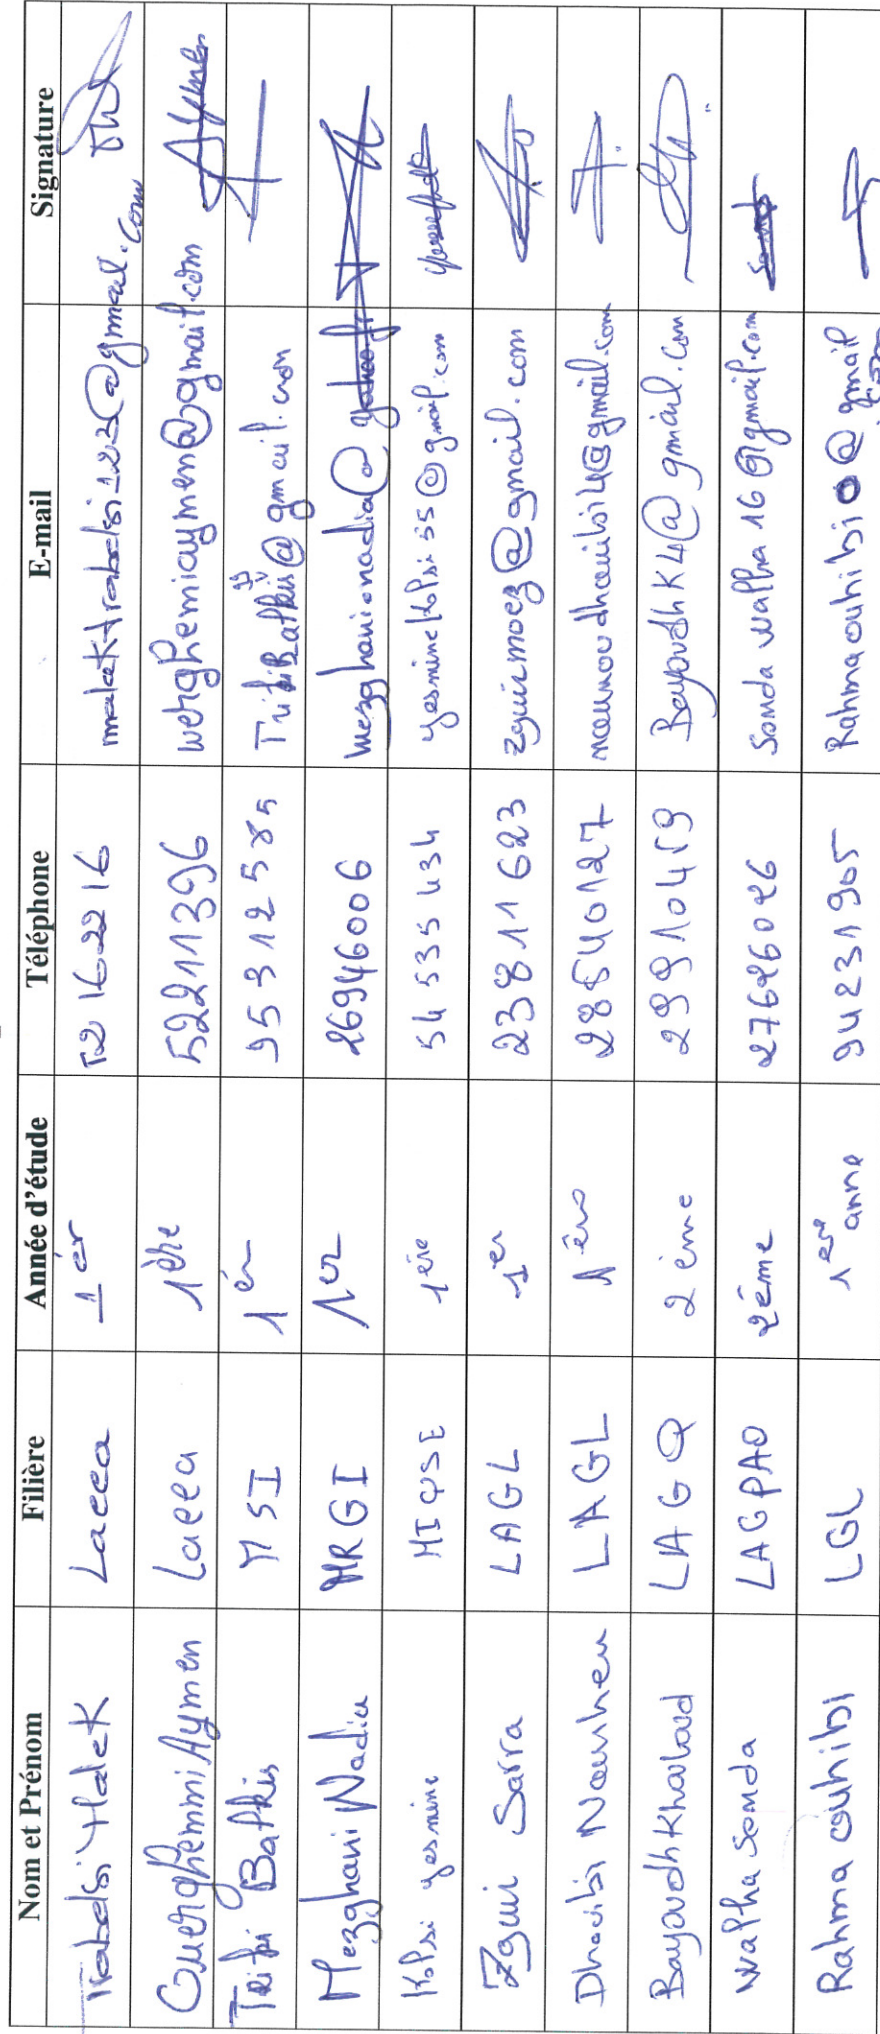 Nom et Prénom Filière Année d'étude Téléphone E-mail Signature
Trabelsi Malek Laeea 1 ér 52 162216 malektrabelsi123@gmail.com
Ouerghemmi Aymen Laeea 1ère 52211396 werghemiaymen@gmail.com Aymen
Trifi Balkis MSI 1ér 95312585 @gmail.com
Mezghani Nadia MRGI 1er 26946006 mezghanionadia@yahoo.fr
Kolsi yesmine MIQSE 1ère 54 535 434 yesminekolsi55@gmail.com
Zguir Sarra LAGL 1er 23811623 zguirmoez@gmail.com
Dhouibi Nourhen LAGL 1ère 28540127 @gmail.com
Bayoudh Khouloud LAGQ 2 éme 29910459 BayoudhK4@gmail.com
Walha Sonda LAGPAO 2éme 27626026 Sonda walha 16@gmail.com
Rahma ouhibi LGL 1ere anne 94231905 Rahmaouhibi0@gmail
.com